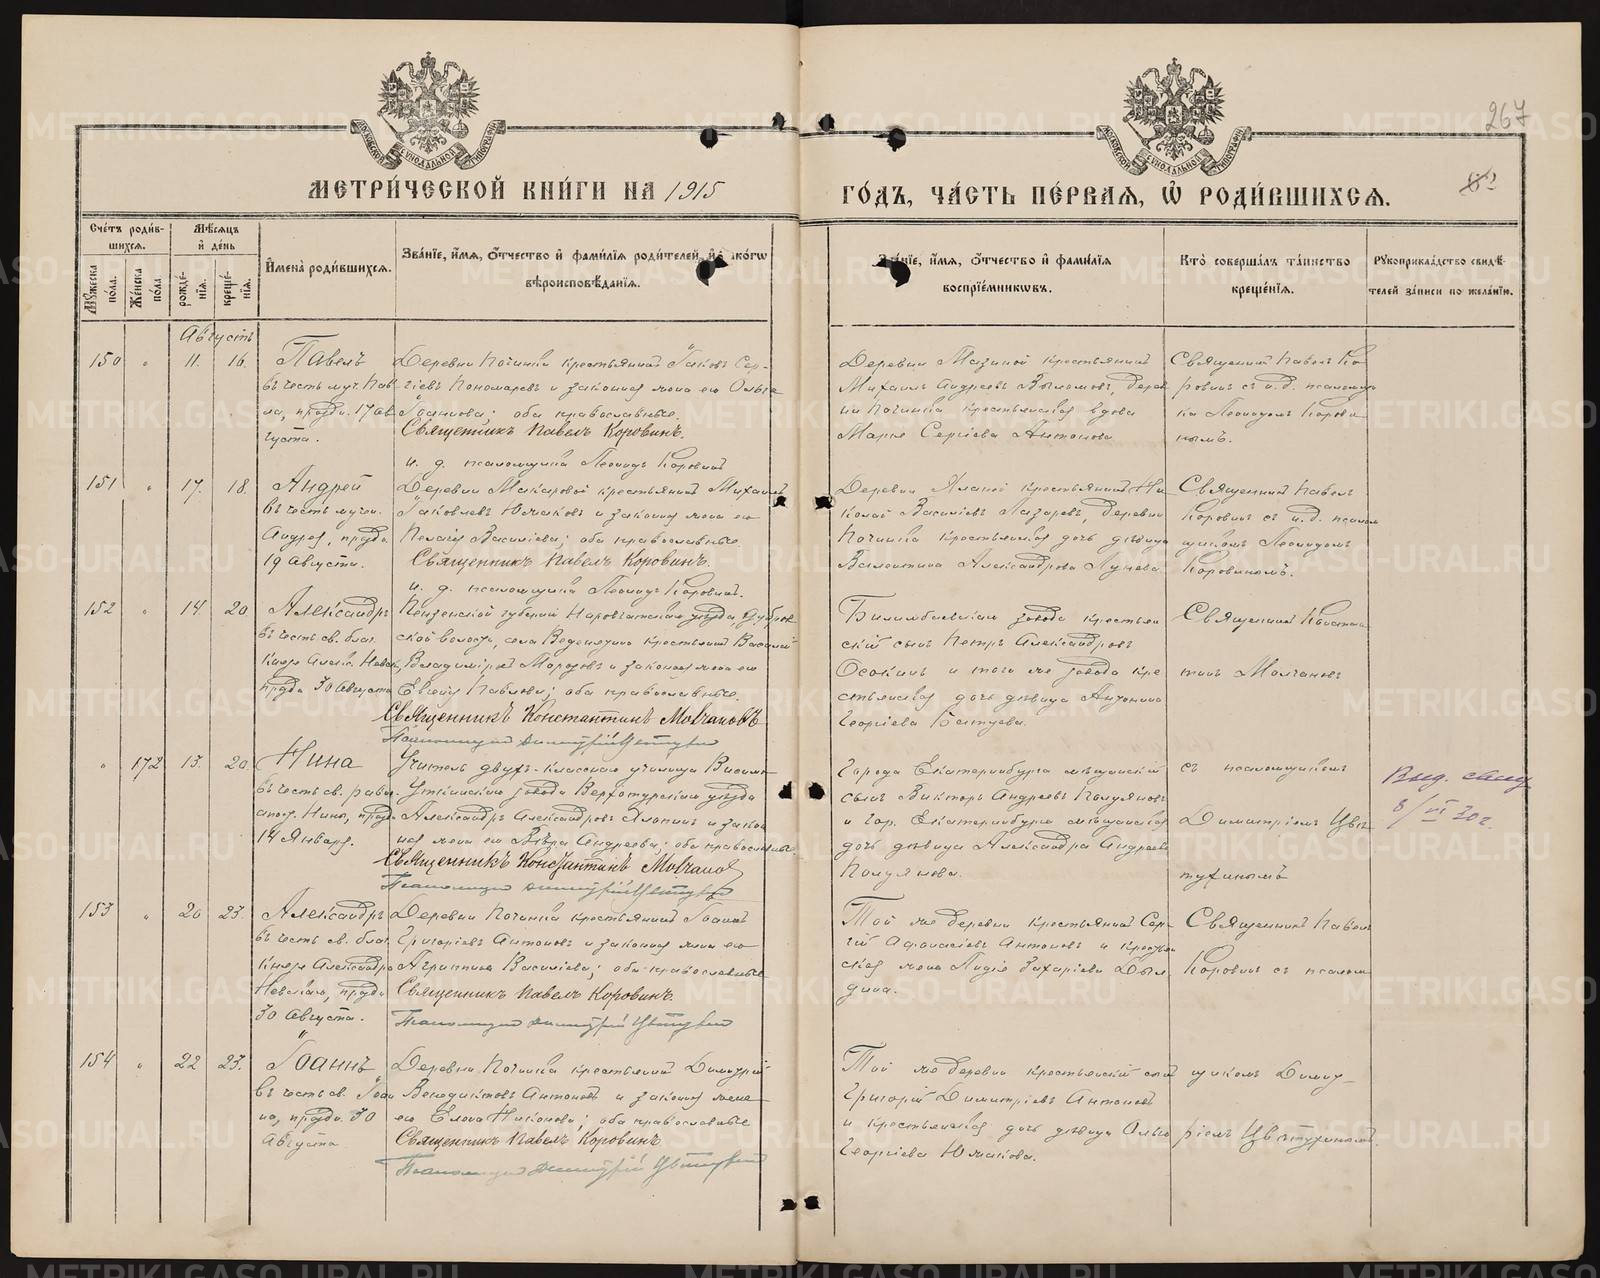 267
МЕТРИ́ЧЕСКОЙ КНИ́ГИ НА 1915
ГО́ДЪ, ЧА́СТЬ ПЕ́РВАЯ, Ѿ РОДИ́ВШИХСѦ.
Сче́тъ роди́в-
шихсѧ.
Мꙋ́жеска по́ла.
Же́нска по́ла.
Мѣ́сѧцъ
и́ де́нь
рожде́-
нїѧ.
креще́-
нїѧ.
И҆мена̀ роди́вшихсѧ.
Зва́нїе, и҆́мѧ, ѻ҆́тчество и҆ фами́лїѧ роди́телей, и҆ како́гѡ
вѣроисповѣ́данїѧ.
Зва́нїе, и҆́мѧ, ѻ҆́тчество и҆ фами́лїѧ
воспрїе́мникѡвъ.
Кто̀ соверша́лъ та́инство
креще́нїѧ.
Рꙋкоприкла́дство свидѣ́-
телей за́писи по жела́нїю.
Августъ
150 " 11. 16.
Павелъ
въ честь муч. Пав-
ла, праздн. 17 ав-
густа.
Деревни Починка крестьянинъ Іаковъ Сер-
гіевъ Пономаревъ и законная жена его Ольга
Іоаннова; оба православные.
Священникъ Павелъ Коровинъ.
и. д. псаломщика Леонидъ Коровинъ
Деревни Мазиной крестьянинъ
Михаилъ Андреевъ, дерев-
ни Починка крестьянская вдова
Марья Сергіева Антонова
Священникъ Павелъ Ко-
ровинъ съ и. д. псаломщи-
ка Леонидомъ Корови-
нымъ.
151 " 17. 18.
Андрей
въ честь мучен.
Андрея, праздн.
19 августа.
Деревни Макаровой крестьянинъ Михаилъ
Іаковлевъ Южаковъ и законная жена его
Пелагія Василіева; оба православные
Священникъ Павелъ Коровинъ.
и. д. псаломщика Леонидъ Коровинъ.
Деревни крестьянинъ Ни-
колай Василіевъ Лазаревъ, деревни
Починка крестьянская дочь дѣвица
Валентина Александрова Лунева
Священникъ Павелъ
Коровинъ съ и. д. псалом-
щикомъ Леонидомъ
Коровинымъ.
152 " 14. 20.
Александръ
въ честь св. благ.
Князя Алекс. Невск.,
праздн. 30 Августа
Пензенской губерніи Наровчатскаго уѣзда,
ской волости, села Веденяпина крестьянинъ Василій
Владиміровъ Морозовъ и законная жена его
Евгенія Павлова; оба православные.
Священникъ Константинъ Молчановъ
Псаломщикъ Димитрій Цвѣтухинъ
Билимбаевскаго завода крестьян-
скій сынъ Петръ Александровъ
Осокинъ и того же завода кре-
стьянская дочь дѣвица Антонина
Георгіева
Священникъ Констан-
тинъ Молчановъ
" 172 13. 20.
Нина
въ честь св. равн-
апост. Нины, праздн.
14 Января.
Учитель двухъ-класснаго училища Висимо-
Уткинскаго завода Верхотурскаго уѣзда
Александръ Александровъ и закон-
ная жена его Вѣра Андреева; оба православные.
Священникъ Константинъ Молчановъ
Псаломщикъ Димитрій Цвѣтухинъ
Города Екатеринбурга мѣщанскій
сынъ Викторъ Андреевъ Полуяновъ
и гор. Екатеринбурга мѣщанская
дочь дѣвица Александра Андреева
Полуянова.
съ псаломщикомъ
Димитріемъ Цвѣ-
тухинымъ
Выд.
8/VI 30 г.
153 " 20 23.
Александръ
въ честь св. благ.
Князя Александра
Невскаго, праздн.
30 Августа.
Деревни Починка крестьянинъ Іоаннъ
Григоріевъ Антоновъ и законная жена его
Агриппина Василіева; оба православные
Священникъ Павелъ Коровинъ.
Псаломщикъ Димитрій Цвѣтухинъ
Той же деревни крестьянинъ Сер-
гій Аѳанасіевъ Антоновъ и крестьян-
ская жена Лидія Захаріева
Священникъ Павелъ
Коровинъ съ псалом-
154 " 22 23.
Іоаннъ
въ честь св. Іоан-
на, праздн. 30
Августа
Деревни Починка крестьянинъ Димитрій
Венедиктовъ Антоновъ и законная жена
его Елена Никонова; оба православные
Священникъ Павелъ Коровинъ
Псаломщикъ Димитрій Цвѣтухинъ
Той же деревни крестьянскій сынъ
Григорій Димитріевъ Антоновъ
и крестьянская дочь дѣвица Ольга
Георгіева Южакова.
щикомъ Димит-
ріемъ Цвѣтухинымъ.
METRIKI.GASO-URAL.RU